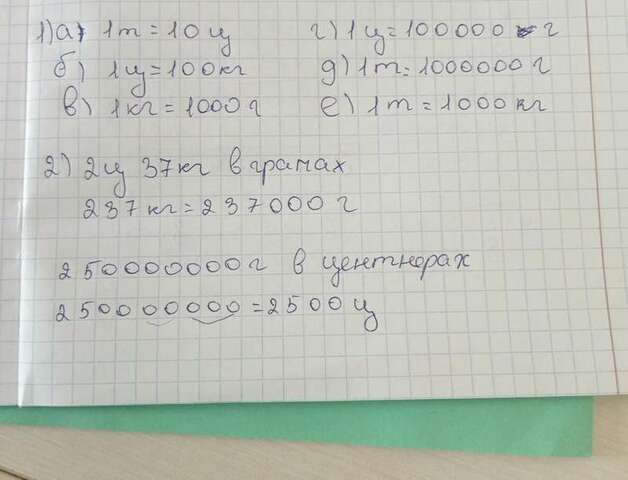 1) а) 1т = 10 ц
б) 1ц = 100кг
в) 1кг = 1000г
г) 1ц = 100000 г
д) 1т = 1000000 г
е) 1т = 1000 кг
2) 2ц 37кг в грамах
237кг = 237000 г
250000000г в центнорах
250000000 = 2500 ц